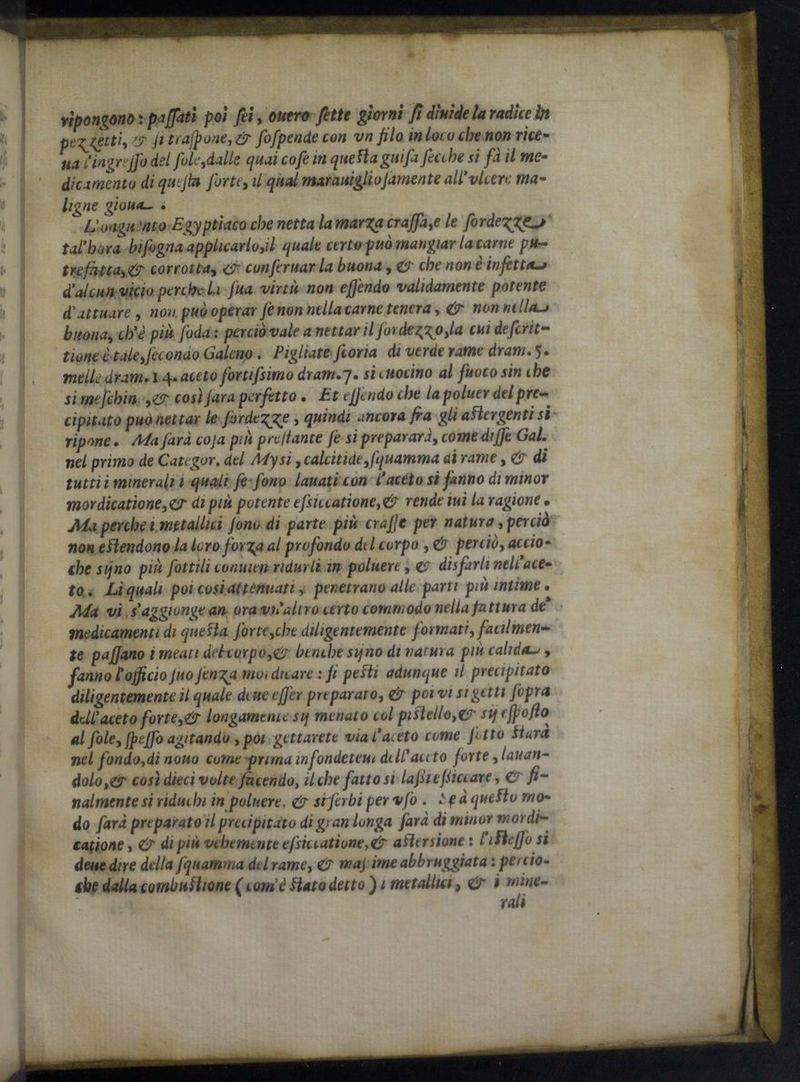 ripongono: paſſati poi ſei, ouero ſette giorni ſi diuide la radice in
pezzetti, & ſi traſpone, & ſoſpende con vn filo in loco che non rice-
ua l'ingreſſo del ſole, dalle quai coſe in queſta guiſa ſecche si fà il me-
dicamento di queſta ſorte, il qual marauiglioſamente all'vlcere ma-
ligne gioua.
L'onguento Egyptiaco che netta la marza craſſa, e le ſordezze,
tal'hora biſogna applicarlo, il quale certo può mangiar la carne pu-
trefatta, & corrotta, & conſeruar la buona, & che non è infetta
d'alcun vicio perche la ſua virtù non eſſendo validamente potente
d'attuare, non può operar ſe non nella carne tenera, & non nella
buona, ch'è più ſoda: perciò vale a nettar il ſordezzo, la cui deſcrit-
tione è tale, ſecondo Galeno. Pigliate ſcoria di verde rame dram. 5.
melle dram. 14. aceto fortiſsimo dram. 7. si cuocino al fuoco sin che
si meſchin, & così ſara perfetto. Et eſſendo che la poluer del pre-
cipitato può nettar le ſordezze, quindi ancora fra gli aſtergenti si
ripone. Ma ſarà coſa più preſtante ſe si preparerà, come diſſe Gal.
nel primo de Categor. del Mysi, calcitide, ſquamma di rame, & di
tutti i minerali i quali ſe ſono lauati con l'aceto si fanno di minor
mordicatione, & di più potente eſsiccatione, & rende iui la ragione.
Ma perche i metallici ſono di parte più craſſe per natura, perciò
non eſtendono la loro forza al profondo del corpo, & perciò, accio-
che sijno più ſottili conuien ridurli in poluere, & disfarli nell'ace-
to. Li quali poi così attenuati, penetrano alle parti più intime.
Ma vi s'aggionge an ora vn'altro certo commodo nella fattura de'
medicamenti di queſta ſorte, che diligentemente formati, facilmen-
te paſſano i meati del corpo, & benche sijno di natura più calida,
fanno l'officio ſuo ſenza mordicare: ſi peſti adunque il precipitato
diligentemente il quale deue eſſer preparato, & poi vi si getti ſopra
dell'aceto forte, & longamente sij menato col piſtello, & sij eſpoſto
al ſole, ſpeſſo agitando, poi gettarete via l'aceto come ſotto ſtarà
nel fondo, di nouo come prima infondeteui dell'aceto forte, lauan-
dolo, & così dieci volte facendo, il che fatto si laſsi eſsiccare, & fi-
nalmente si riduchi in poluere, & si ſerbi per vſo. Se à queſto mo-
do ſarà preparato il precipitato di gran longa ſarà di minor mordi-
catione, & di più vehemente eſsiccatione, & aſtersione: l'iſteſſo si
deue dire della ſquamma del rame, & maſsime abbruggiata: percio-
che dalla combuſtione (com'è ſtato detto) i metallici, & i mine-
rali